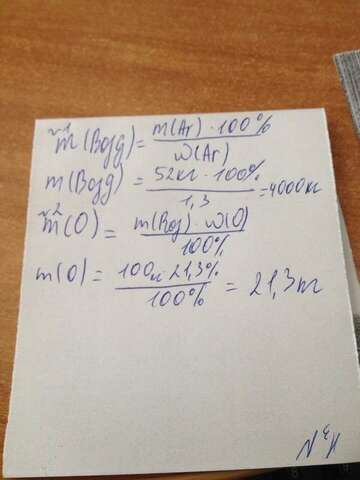 №1
m(Возд) = m(Ar) · 100% / w(Ar)
m(Возд) = 52кг · 100% / 1,3 = 4000кг
№2
m(O) = m(Возд) · w(O) / 100%
m(O) = 100кг · 21,3% / 100% = 21,3кг